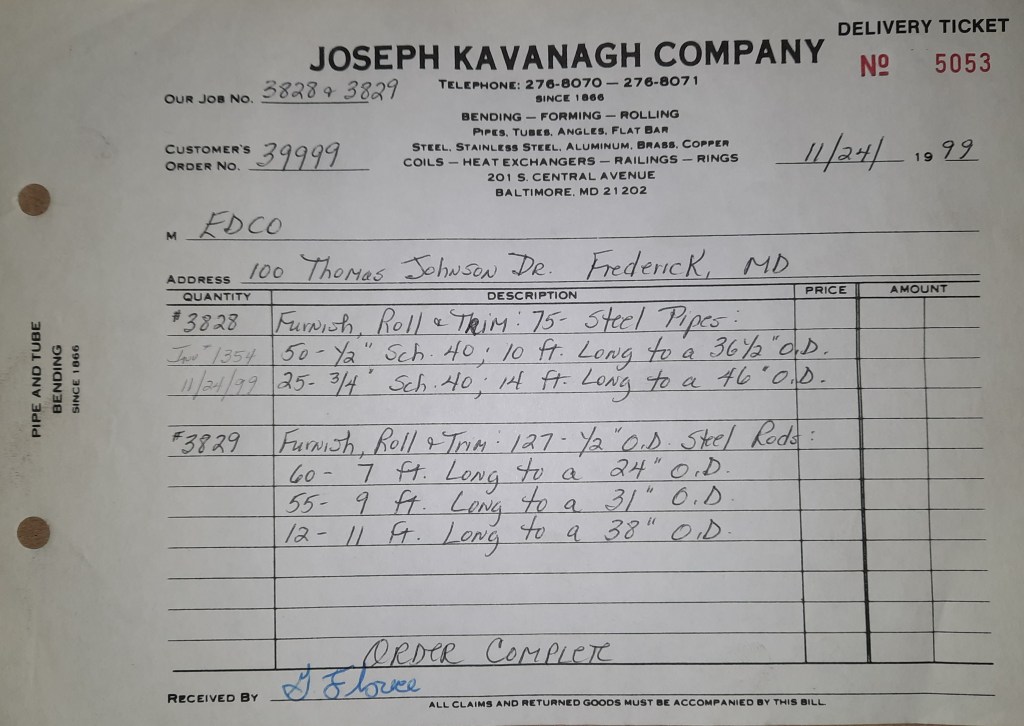 DELIVERY TICKET
JOSEPH KAVANAGH COMPANY
Nº 5053
OUR JOB NO. 3828 & 3829
TELEPHONE: 276-8070 — 276-8071
SINCE 1866
BENDING — FORMING — ROLLING
PIPES, TUBES, ANGLES, FLAT BAR
CUSTOMER'S ORDER NO. 39999
STEEL, STAINLESS STEEL, ALUMINUM, BRASS, COPPER
COILS — HEAT EXCHANGERS — RAILINGS — RINGS
11/24/ 19 99
201 S. CENTRAL AVENUE
BALTIMORE, MD 21202
M EDCO
ADDRESS 100 Thomas Johnson Dr. Frederick, MD
QUANTITY DESCRIPTION PRICE AMOUNT
#3828 Furnish, Roll & Trim: 75- Steel Pipes:
Inv# 1354 50 - 1/2" Sch. 40; 10 ft. Long to a 36 1/2" O.D.
11/24/99 25- 3/4" Sch. 40; 14 ft. Long to a 46" O.D.
#3829 Furnish, Roll & Trim: 127- 1/2" O.D. Steel Rods:
60- 7 ft. Long to a 24" O.D.
55- 9 ft. Long to a 31" O.D.
12- 11 ft. Long to a 38" O.D.
ORDER COMPLETE
RECEIVED BY
ALL CLAIMS AND RETURNED GOODS MUST BE ACCOMPANIED BY THIS BILL
PIPE AND TUBE
BENDING
SINCE 1866